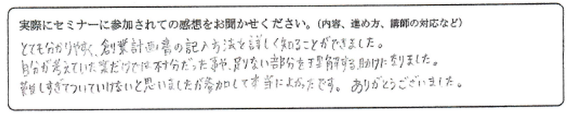 実際にセミナーに参加されての感想をお聞かせください。(内容、進め方、講師の対応など)
とても分かりやすく、創業計画書の記入方法を詳しく知ることができました。
自分が考えていた案だけでは不十分だった事や、足りない部分を理解する助けになりました。
難しすぎてついていけないと思いましたが参加して本当によかったです。ありがとうございました。